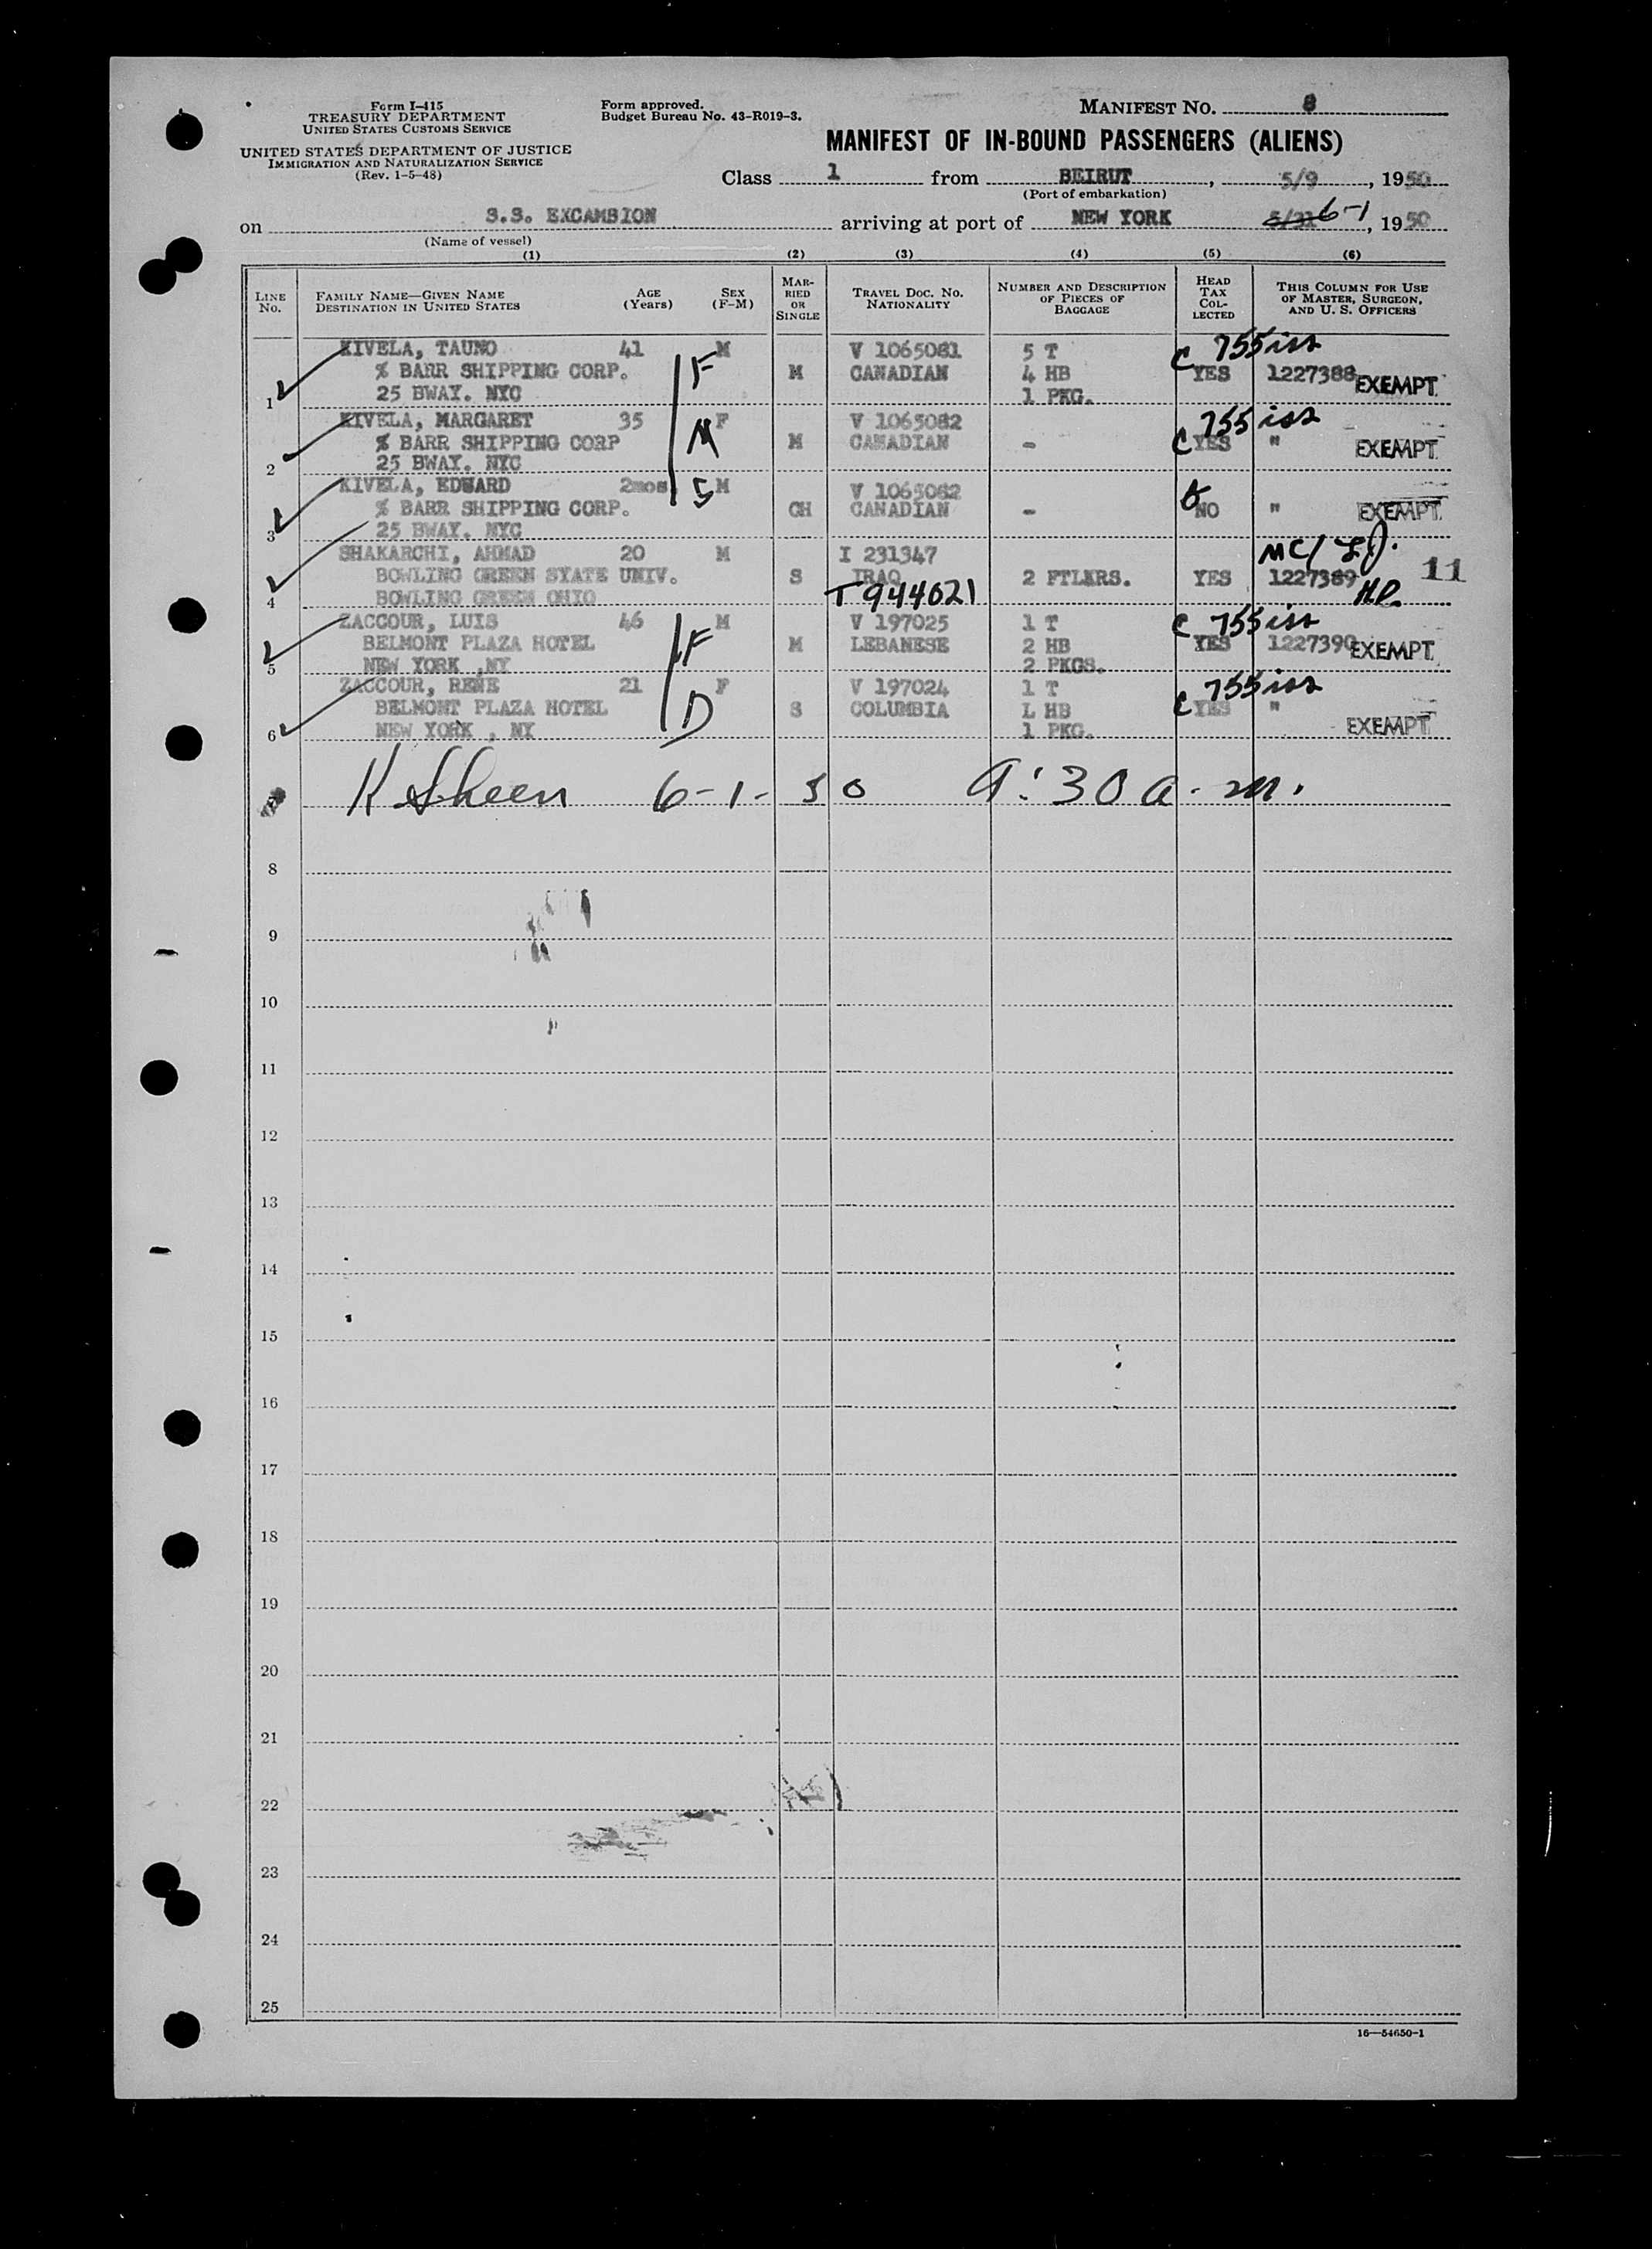 Form I-415
TREASURY DEPARTMENT
UNITED STATES CUSTOMS SERVICE
UNITED STATES DEPARTMENT OF JUSTICE
IMMIGRATION AND NATURALIZATION SERVICE
(Rev. 1-5-48)
Form approved.
Budget Bureau No. 43-R019-3.
MANIFEST NO. 8
MANIFEST OF IN-BOUND PASSENGERS (ALIENS)
Class 1 from BEIRUT, 5/9, 1950
(Port of embarkation)
on S.S. EXCAMBION arriving at port of NEW YORK 5/31 6-1, 1950
(Name of vessel)
(1) (2) (3) (4) (5) (6)
LINE No. FAMILY NAME—GIVEN NAME DESTINATION IN UNITED STATES AGE (Years) SEX (F-M) MARRIED OR SINGLE TRAVEL DOC. NO. NATIONALITY NUMBER AND DESCRIPTION OF PIECES OF BAGGAGE HEAD TAX COLLECTED THIS COLUMN FOR USE OF MASTER, SURGEON, AND U. S. OFFICERS
KIVELA, TAUNO 41 M V 1065081 5 T C 755 iss
% BARR SHIPPING CORP. F M CANADIAN 4 HB YES 1227388 EXEMPT
1 25 BWAY. NYC 1 PKG.
KIVELA, MARGARET 35 F V 1065082 755 iss
% BARR SHIPPING CORP M M CANADIAN - C YES " EXEMPT
2 25 BWAY. NYC
KIVELA, EDWARD 2mos S M V 1065082
% BARR SHIPPING CORP. CH CANADIAN - NO " EXEMPT
3 25 BWAY. NYC
SHAKARCHI, AHMAD 20 M I 231347 MC/
BOWLING GREEN STATE UNIV. S IRAQ 2 FTLKRS. YES 1227389 11
4 BOWLING GREEN OHIO T944021
ZACCOUR, LUIS 46 M V 197025 1 T C 755 iss
BELMONT PLAZA HOTEL F M LEBANESE 2 HB YES 1227390 EXEMPT
5 NEW YORK ,NY 2 PKGS.
ZACCOUR, RENE 21 F V 197024 1 T 755 iss
BELMONT PLAZA HOTEL D S COLUMBIA L HB C YES " EXEMPT
6 NEW YORK , NY 1 PKG.
K Skeen 6-1-50 9:30 a.m.
8
9
10
11
12
13
14
15
16
17
18
19
20
21
22
23
24
25
16—54650-1